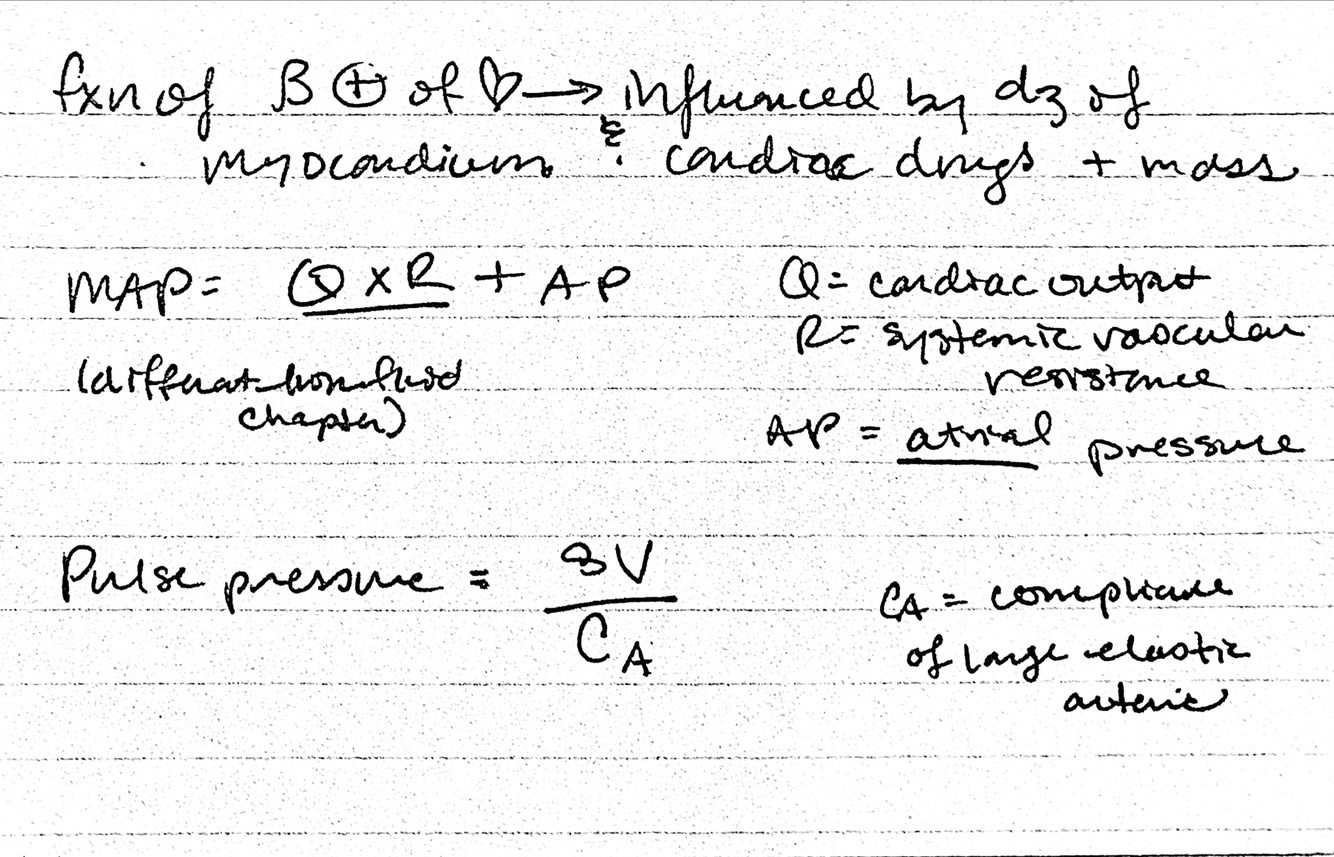 fxn of β ⊕ of ♡ → influenced by dz of
myocardium & cardiac drugs + mass
MAP = Q x R + AP
(different from fluid
chapter)
Q = cardiac output
R = systemic vascular
resistance
AP = atrial pressure
Pulse pressure = SV
CA
CA = compliance
of large elastic
arteries